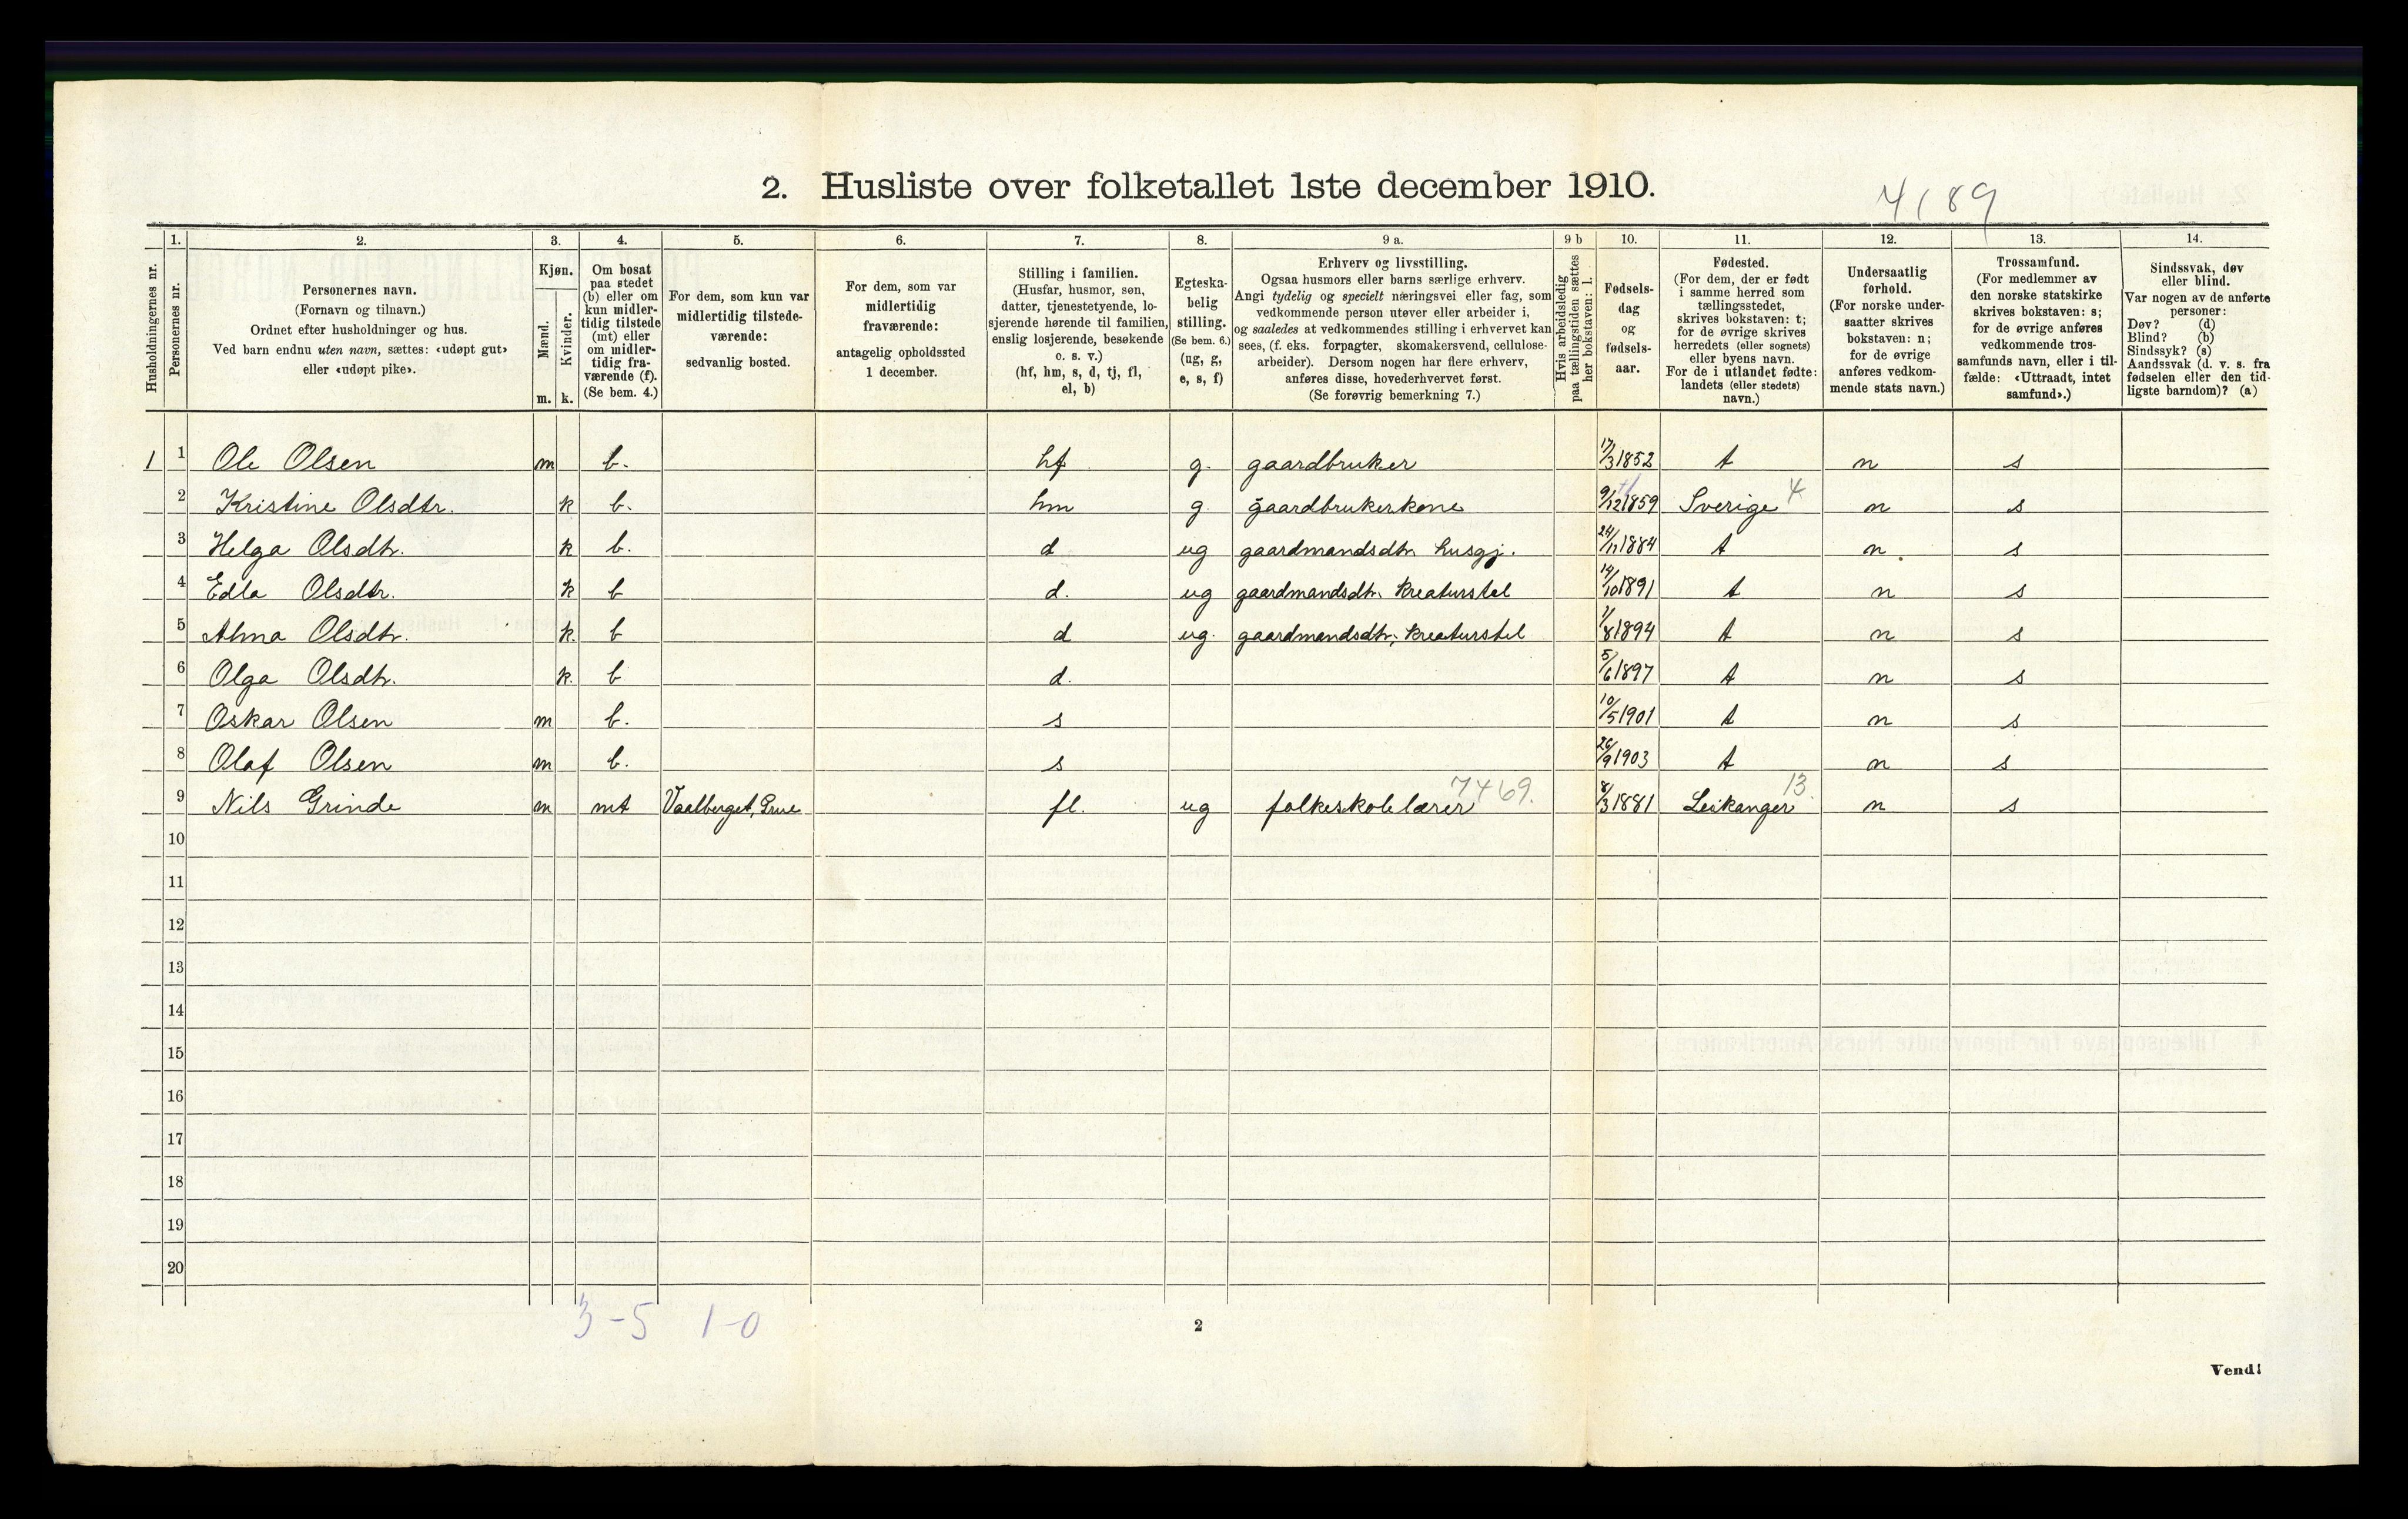 2. Husliste over folketallet 1ste december 1910.
4189
Husholdningernes nr.
1.
Personernes nr.
2.
Personernes navn.
(Fornavn og tilnavn.)
Ordnet efter husholdninger og hus.
Ved barn endnu uten navn, sættes: «udøpt gut»
eller «udøpt pike».
3.
Kjøn.
Mænd.
Kvinder.
m. k.
4.
Om bosat
paa stedet
(b) eller om
kun midler-
tidig tilstede
(mt) eller
om midler-
tidig fra-
værende (f).
(Se bem. 4.)
5.
For dem, som kun var
midlertidig tilstede-
værende:
sedvanlig bosted.
6.
For dem, som var
midlertidig
fraværende:
antagelig opholdssted
1 december.
7.
Stilling i familien.
(Husfar, husmor, søn,
datter, tjenestetyende, lo-
sjerende hørende til familien,
enslig losjerende, besøkende
o. s. v.)
(hf, hm, s, d, tj, fl,
el, b)
8.
Egteska-
belig
stilling.
(Se bem. 6.)
(ug, g,
e, s, f)
9 a.
Erhverv og livsstilling.
Ogsaa husmors eller barns særlige erhverv.
Angi tydelig og specielt næringsvei eller fag, som
vedkommende person utøver eller arbeider i,
og saaledes at vedkommendes stilling i erhvervet kan
sees, (f. eks. forpagter, skomakersvend, cellulose-
arbeider). Dersom nogen har flere erhverv,
anføres disse, hovederhvervet først.
(Se forøvrig bemerkning 7.)
9 b
Hvis arbeidsledig
paa tællingstiden sættes
her bokstaven: l.
10.
Fødsels-
dag
og
fødsels-
aar.
11.
Fødested.
(For dem, der er født
i samme herred som
tællingsstedet,
skrives bokstaven: t;
for de øvrige skrives
herredets (eller sognets)
eller byens navn.
For de i utlandet fødte:
landets (eller stedets)
navn.)
12.
Undersaatlig
forhold.
(For norske under-
saatter skrives
bokstaven: n;
for de øvrige
anføres vedkom-
mende stats navn.)
13.
Trossamfund.
(For medlemmer av
den norske statskirke
skrives bokstaven: s;
for de øvrige anføres
vedkommende tros-
samfunds navn, eller i til-
fælde: «Uttraadt, intet
samfund».)
14.
Sindssvak, døv
eller blind.
Var nogen av de anførte
personer:
Døv? (d)
Blind? (b)
Sindssyk? (s)
Aandssvak (d. v. s. fra
fødselen eller den tid-
ligste barndom)? (a)
1 1 Ole Olsen m b. hf g. gaardbruker 17/3 1852 t n s
2 Kristine Olsdtr. k b. hm g gaardbrukerkone 9/12 1859 Sverige 4 n s
3 Helga Olsdtr. k b. d ug gaardmandsdtr. husgj. 24/11 1884 t n. s
4 Edla Olsdtr. k b d. ug gaardmandsdtr. kreaturstel 14/10 1891 t n s
5 Alma Olsdtr. k. b d ug. gaardmandsdtr; kreaturstel 1/8 1894 t n s
6 Olga Olsdtr. k. b d. 5/6 1897 t n s
7 Oskar Olsen m b. s 10/5 1901 t n s
8 Olaf Olsen m b. s 26/9 1903 t n s
9 Nils Grinde m mt Vaalberget, Grue fl. ug folkeskolelærer 7469. 8/3 1881 Leikanger 13. n s
10
11
12
13
14
15
16
17
18
19
20
3-5 1-0
2
Vend!